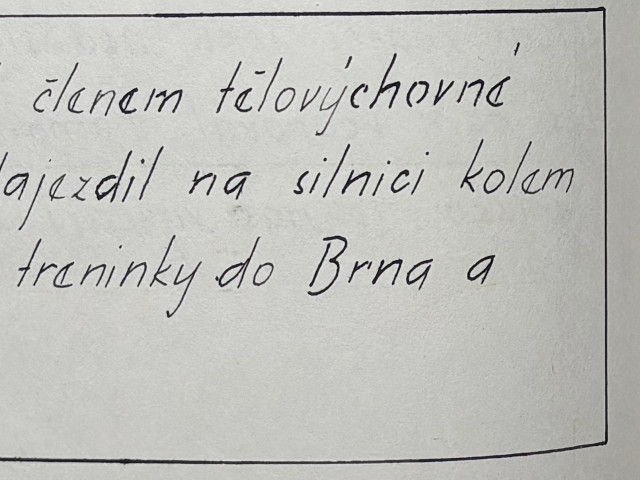 členem tělovýchovné
na silnici kolem
treninky do Brna a